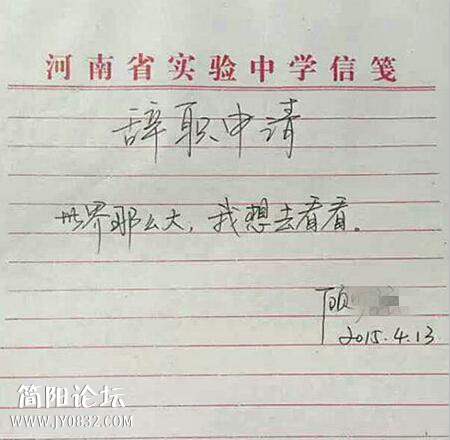 河南省实验中学信笺
辞职申请
世界那么大，我想去看看。
顾
2015.4.13
简阳论坛
www.JY0832.com